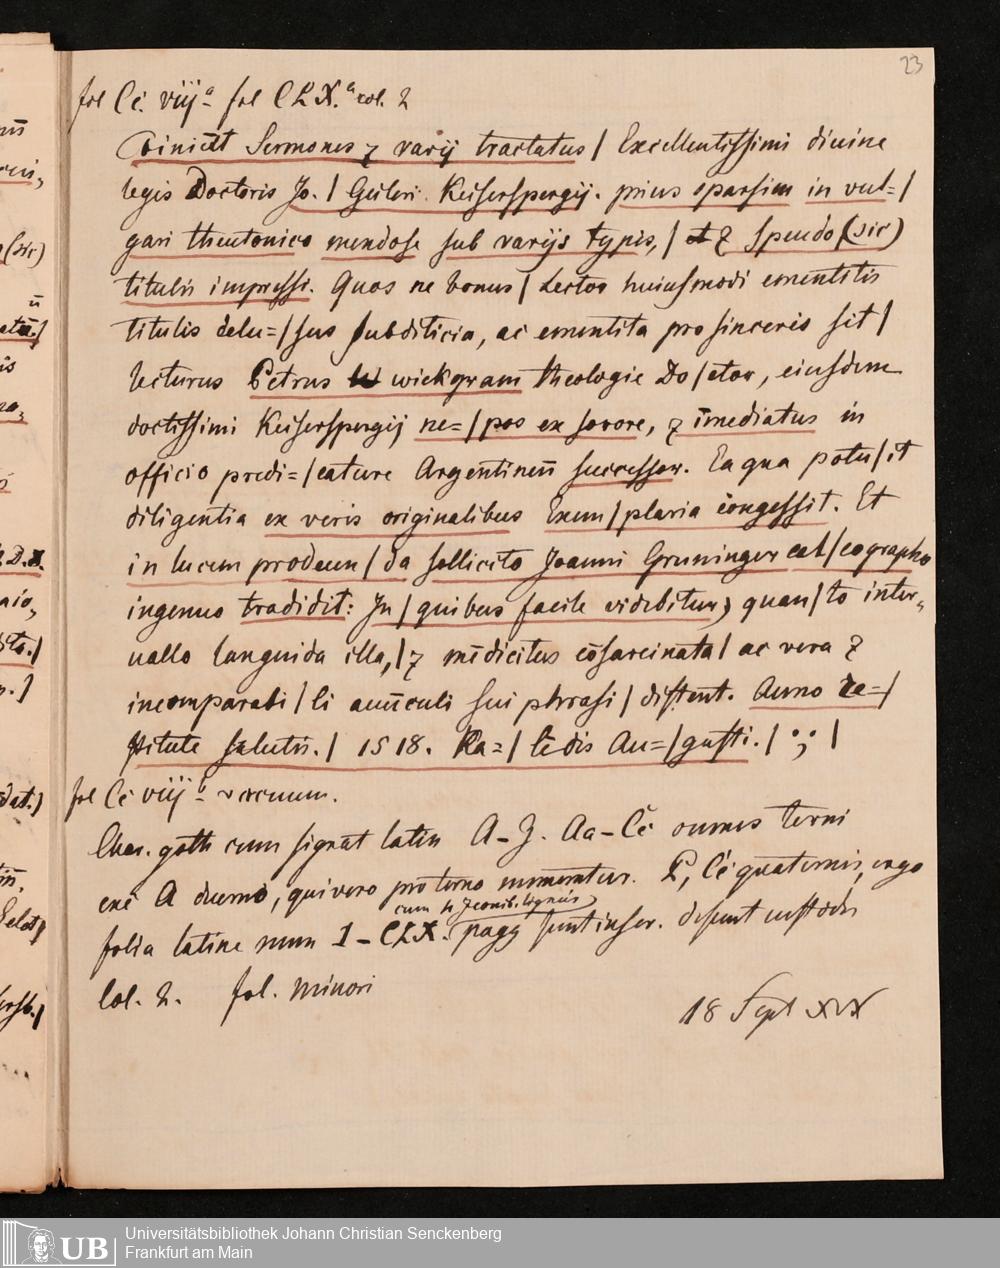 23
fol Cc̄ viijᵃ fol CLX.ᵃ col. 2
Finiūt Sermones ⁊ varij tractatus | Excellentissimi divine
legis Doctoris Jo. | Geileri Keiserspergij. prius sparsim in vul=|
gari theutonico mendose sub varijs typis, | ⁊ Speudo (sic)
titulis impressi. Quos ne bonus | Lector huiusmodi ementitis
titulis delu=|sus subditicia, ac ementita pro sinceris sit |
lecturus Petrus wickgram theologie Do|ctor, eiusdem
doctissimi Keiserspergij ne=|pos ex sorore, ⁊ īmediatus in
officio predi=|cature Argentineñ successor. Ea qua potu|it
diligentia ex veris originalibus Exem|plaria congessit. Et
in lucem prodeun|da sollicito Joanni Gruninger cal|cographo
ingenuo tradidit: In | quibus facile videbitur, quan|to inter-
uallo languida illa, | ⁊ mēdicitus cōsarcinata | ac vera ⁊
incomparabi|li auūculi sui phrasi | distent. Anno re=|
stitute salutis. | 1518. Ka=|lēdis Au=|gusti. | ·,· |
fol Cc̄ viijᵇ vacuum.
Char. goth cum signat latin A–Z. Aa–Cc̄ omnes terni
exc A duerno, qui vero pro terno numeratur. P, Cc̄ quaternis, ergo
cum 4 Iconib. ligneis
folia latine num 1–CLX. pagg sunt inscr. desunt custodes
Col. 2. fol. minori
18 Sept XIX
Universitätsbibliothek Johann Christian Senckenberg
UB Frankfurt am Main